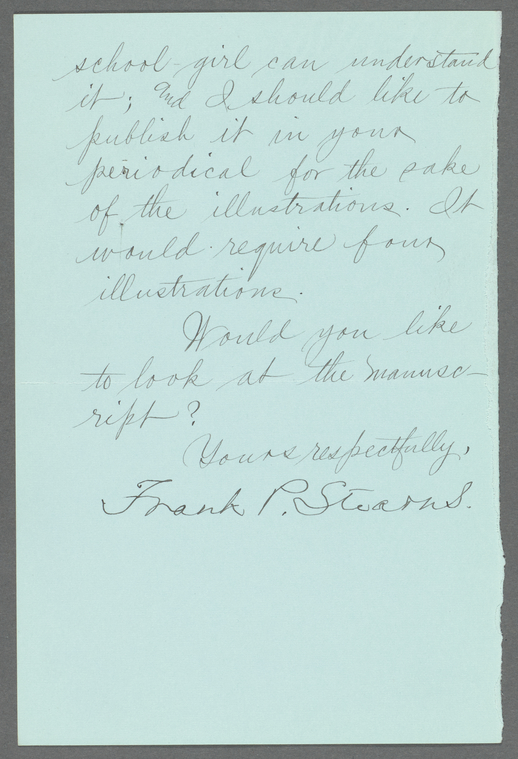 school-girl can understand
it; and I should like to
publish it in your
periodical for the sake
of the illustrations. It
would require four
illustrations.
Would you like
to look at the manusc-
ript?
Yours respectfully,
Frank P. Stearns.